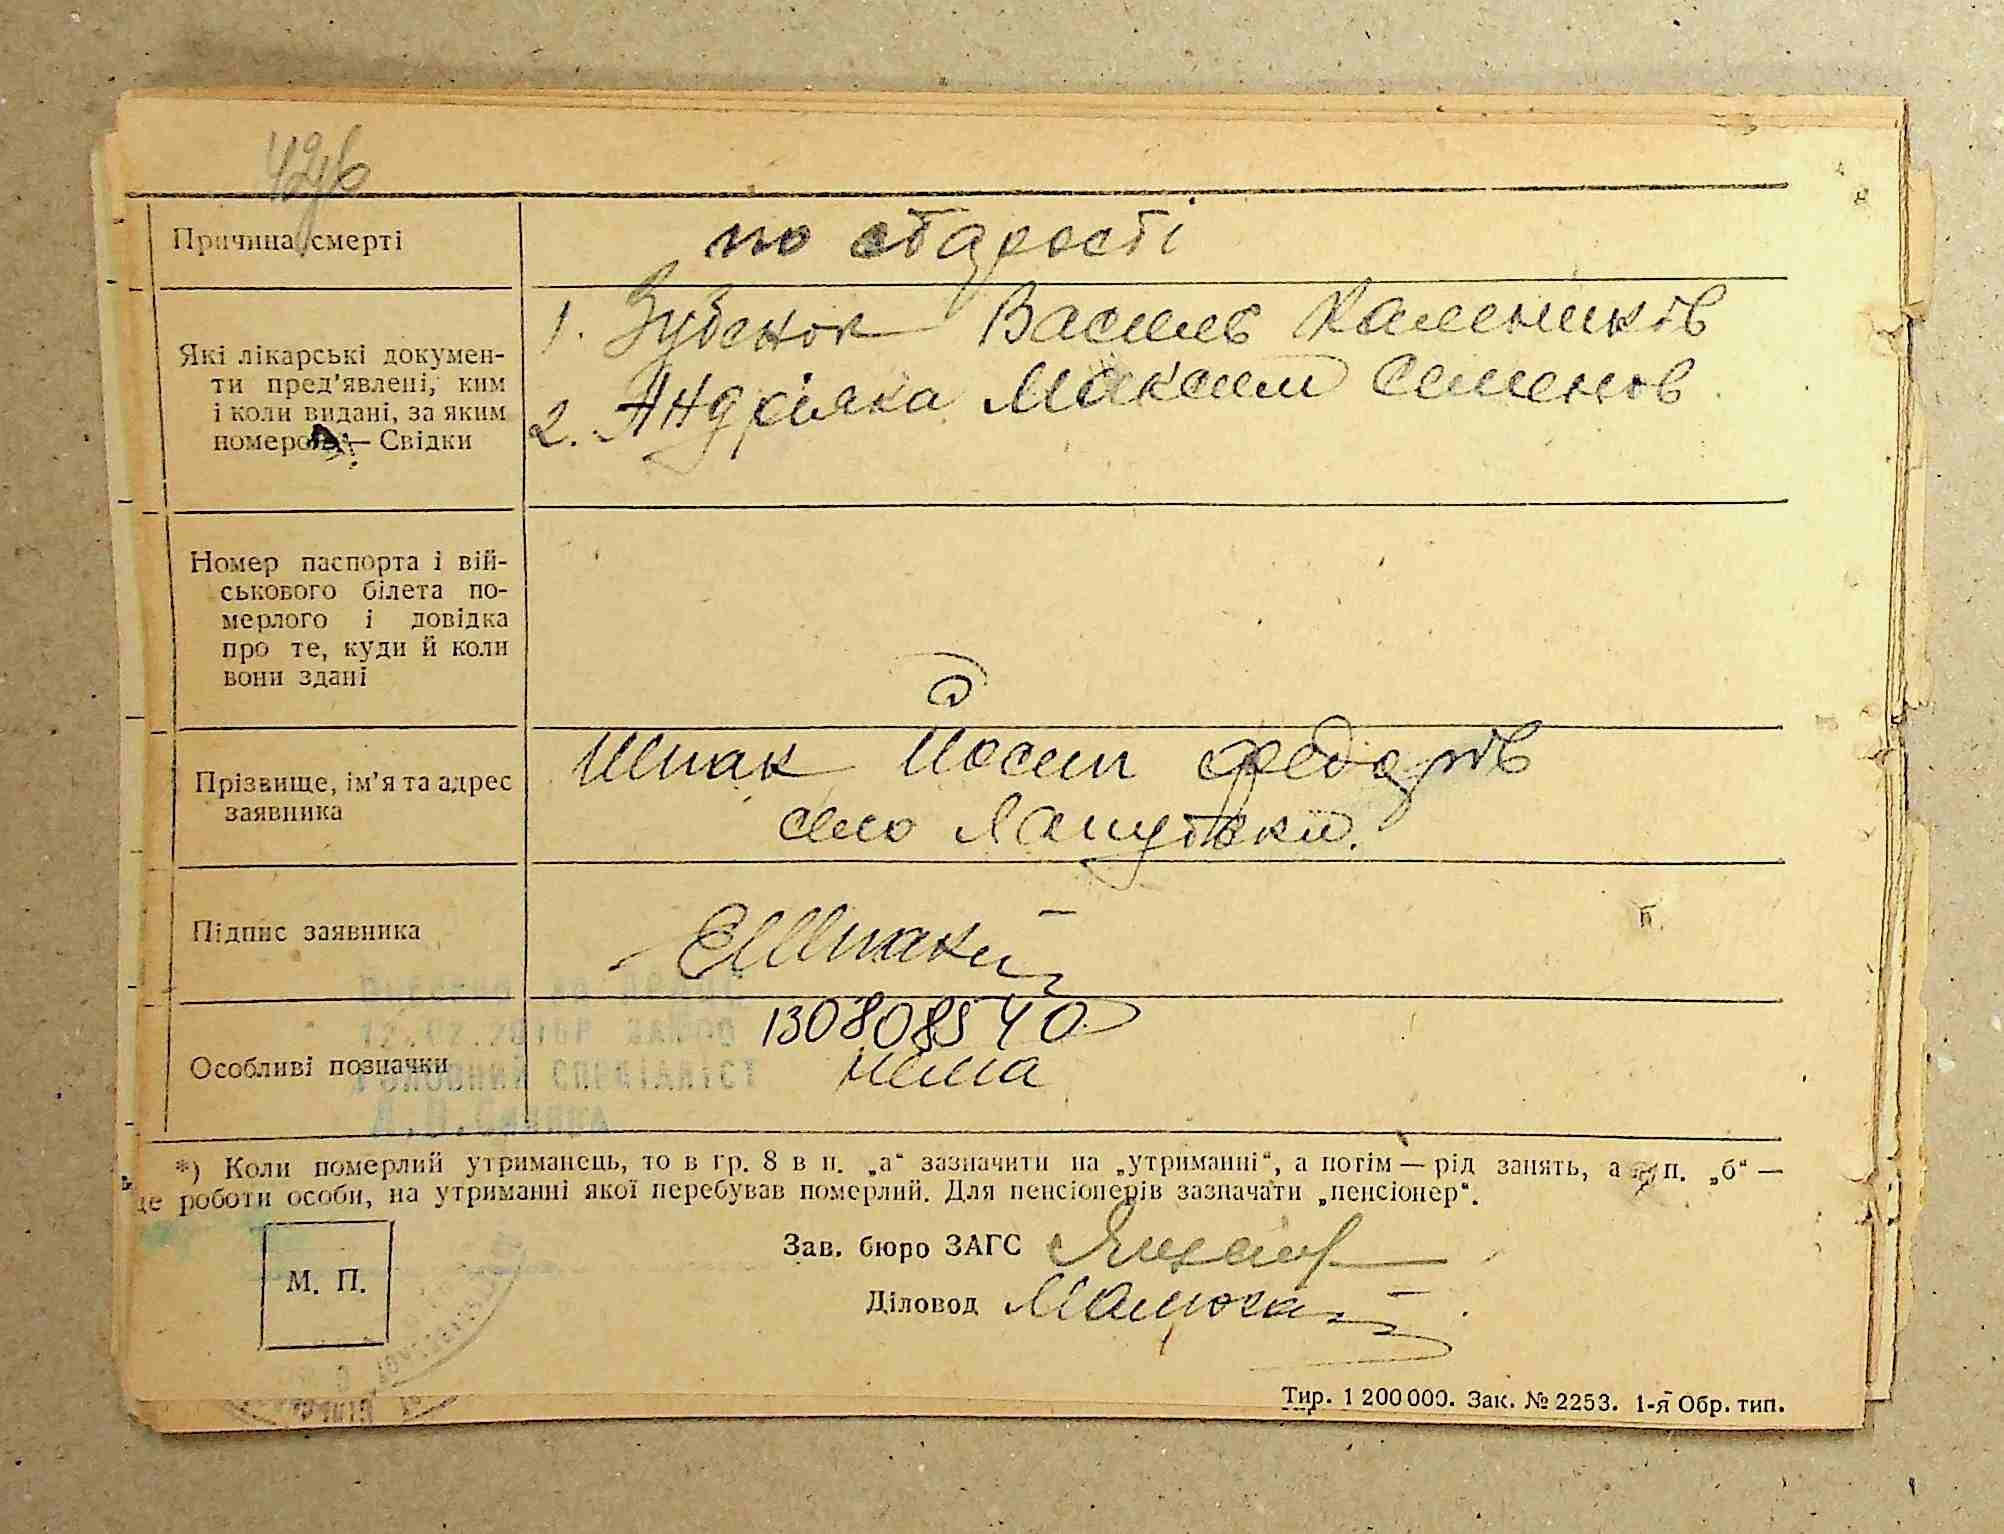 Причина смерті
по старості
Які лікарські докумен-
ти пред'явлені, ким
і коли видані, за яким
номером — Свідки
1. Зубенок Василь Калеників
2. Андріяка Максим Семенов
Номер паспорта і вій-
ськового білета по-
мерлого і довідка
про те, куди й коли
вони здані
Прізвище, ім'я та адрес
заявника
Шпак Йосип Федорів
село
Підпис заявника
Особливі позначки
130808540
нема
12.02.2016р
головний спеціаліст
*) Коли померлий утриманець, то в гр. 8 в п. „а“ зазначити на „утриманні“, а потім — рід занять, а в п. „б“ —
це роботи особи, на утриманні якої перебував померлий. Для пенсіонерів зазначати „пенсіонер“.
М. П.
Зав. бюро ЗАГС
Діловод
Тир. 1 200 000. Зак. № 2253. 1-я Обр. тип.